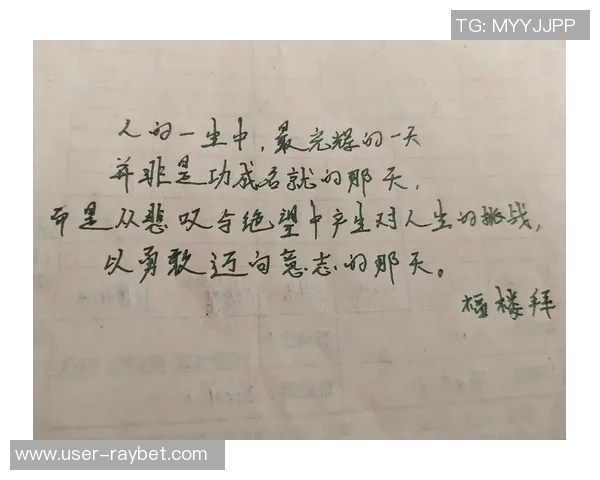 TG: MYYJJPP
人的一生中,最光辉的一天
并非是功成名就的那天,
而是从悲叹与绝望中产生对人生的挑战,
以勇敢迈向意志的那天。
福楼拜
www.user-raybet.com